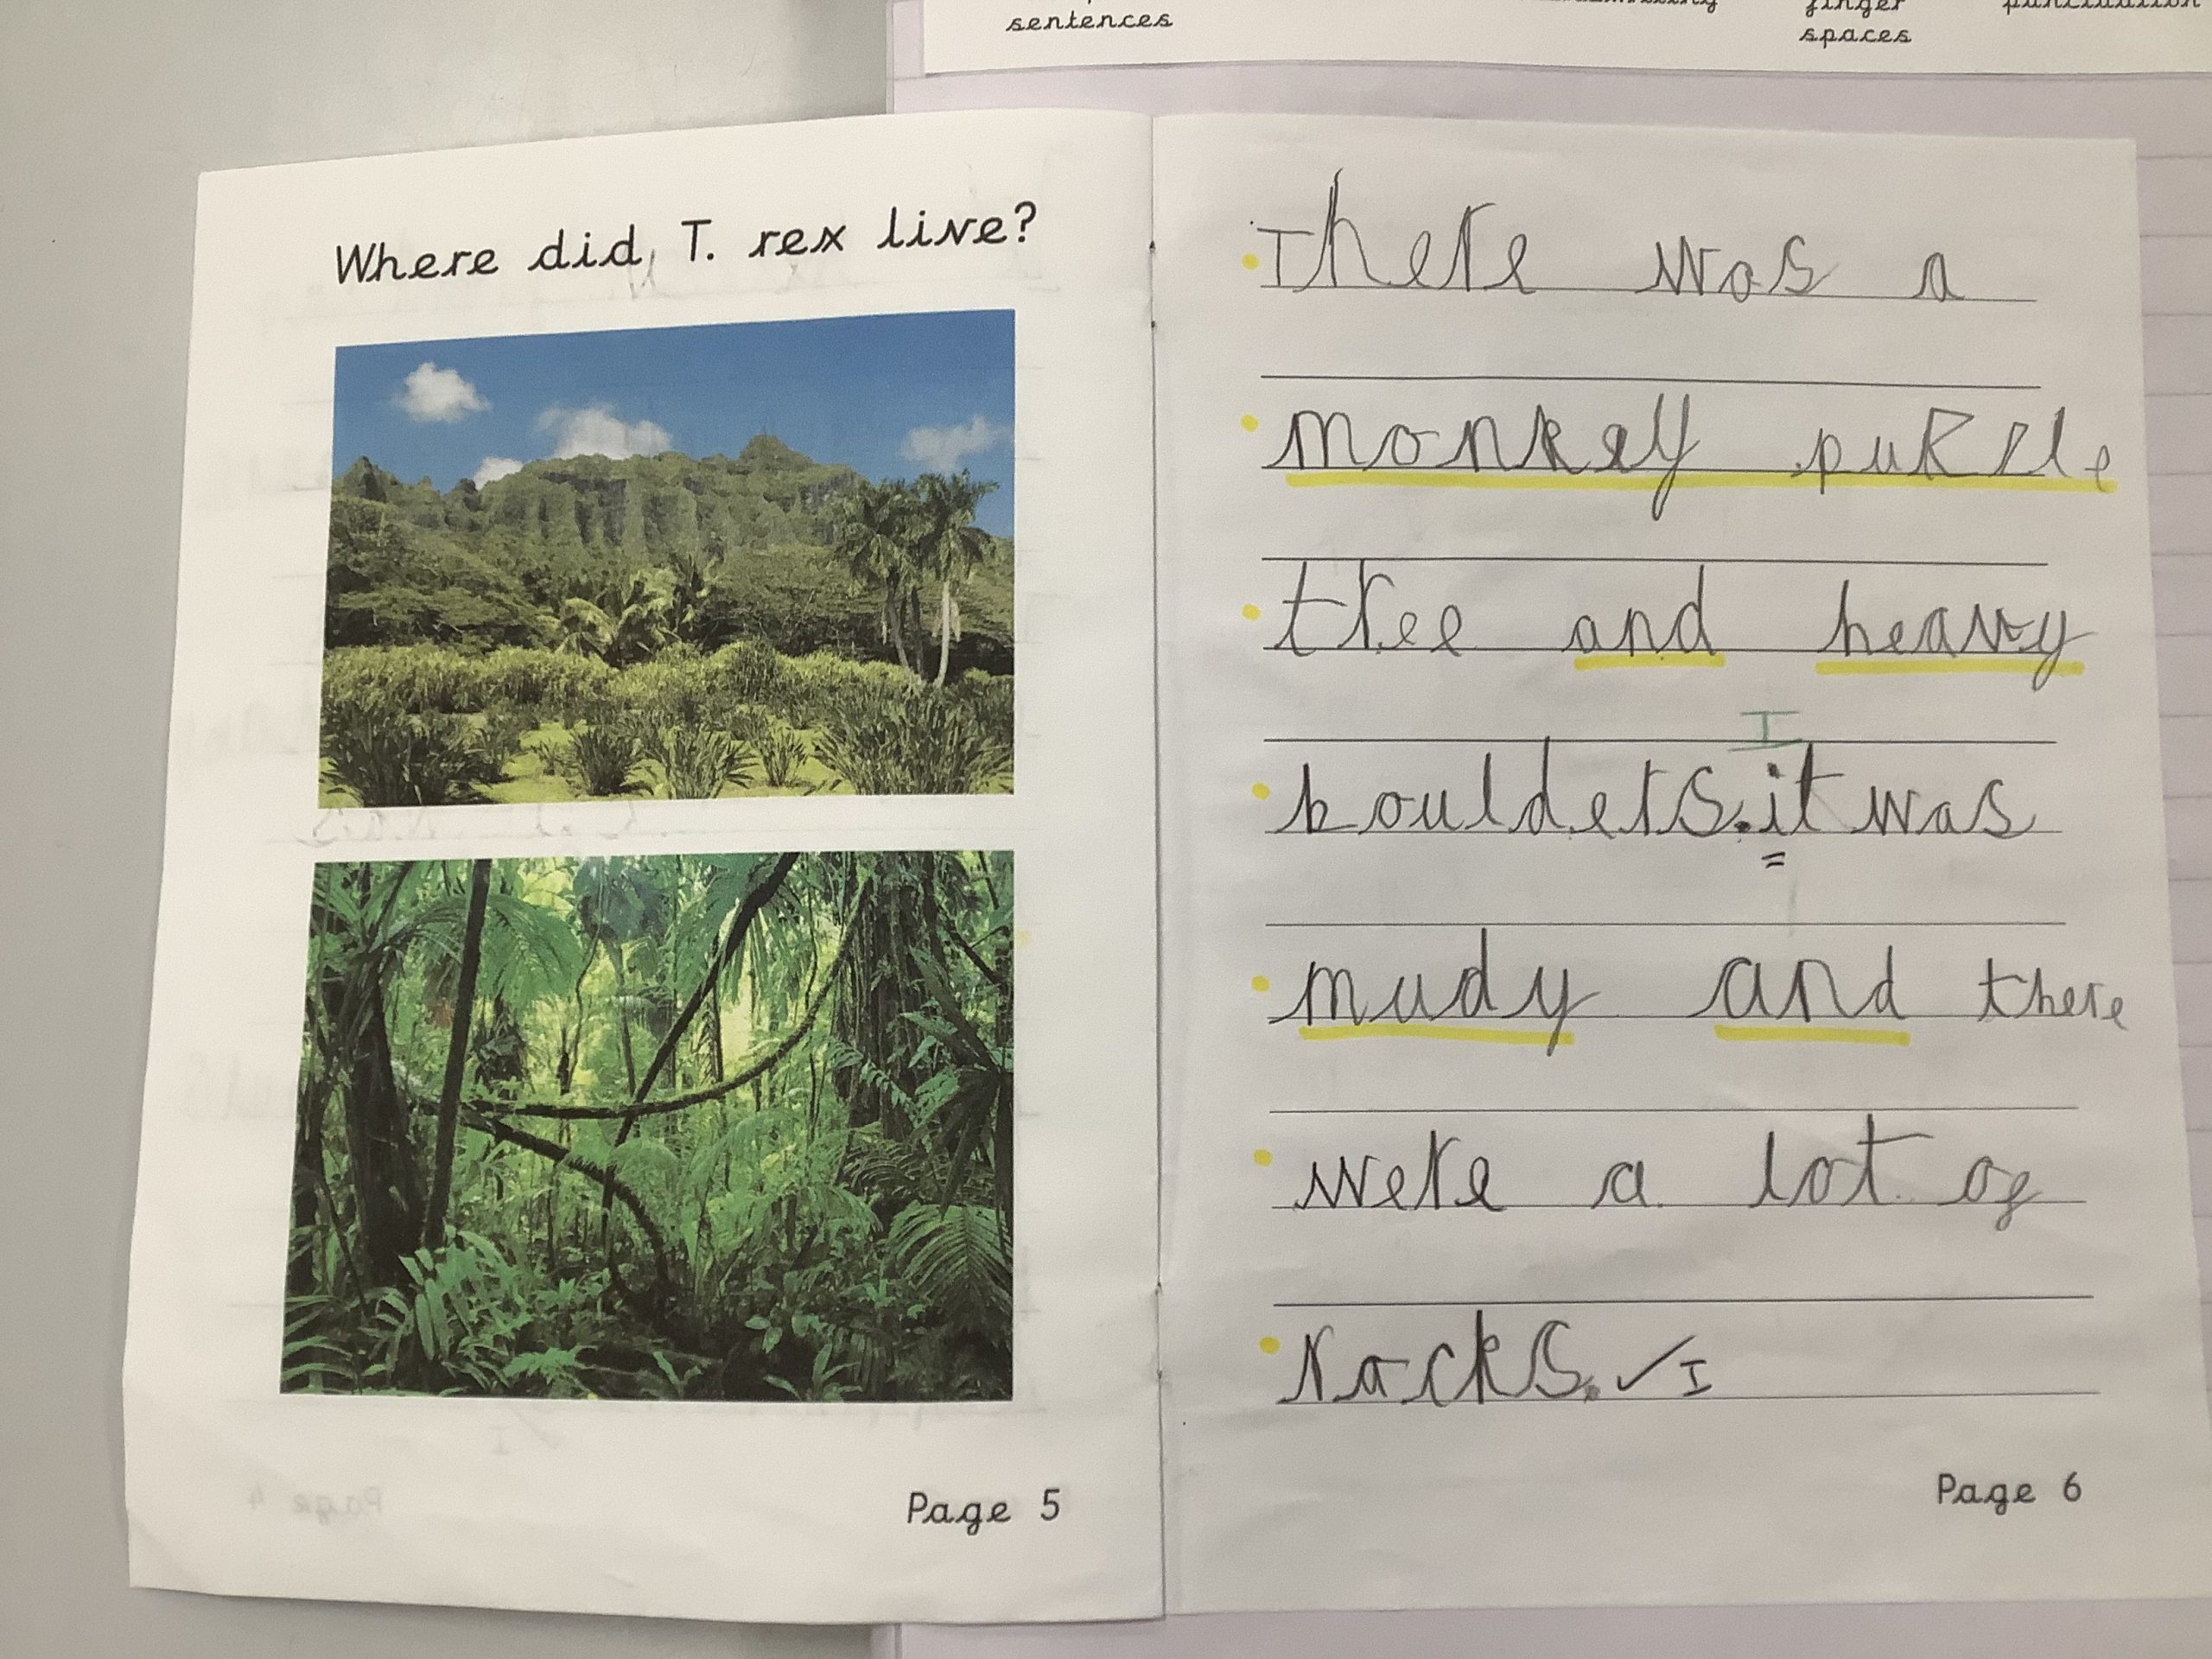 sentences
finger
spaces
punctuation
Where did T. rex live?
Page 5
There was a
monkey puzzle
tree and heavy
I
boulders.it was
=
mudy and there
were a lot of
rocks. ✓ I
Page 6